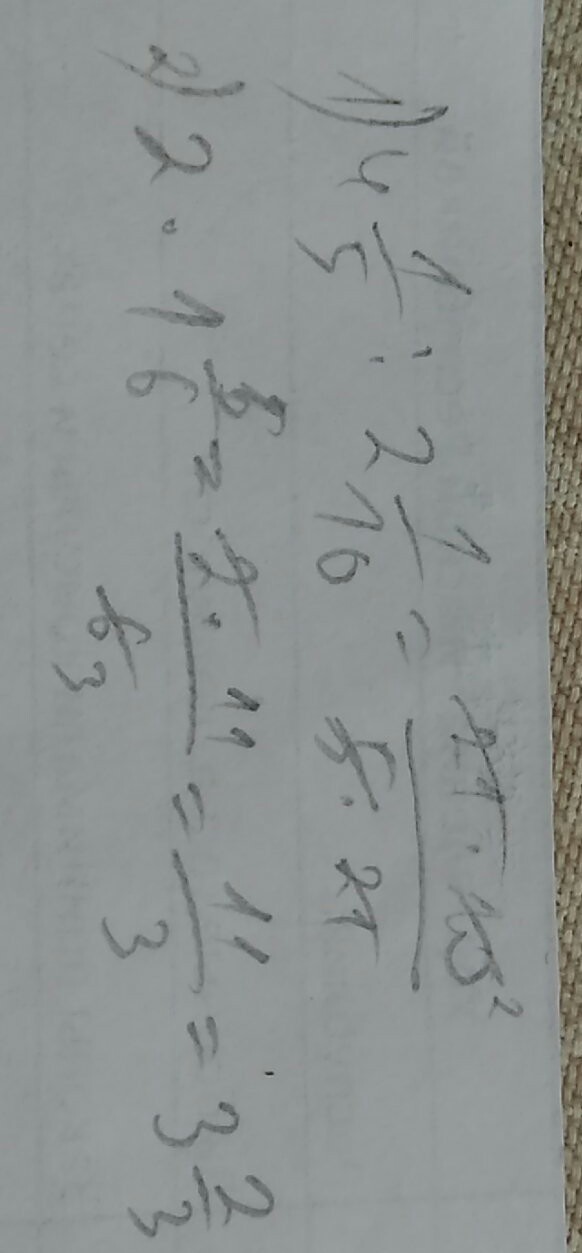 1) 4 1/5 : 2 1/10 = 21 · 10 2 / 5 · 21
2) 2 · 1 5/6 = 2 · 11 / 6 3 = 11/3 = 3 2/3